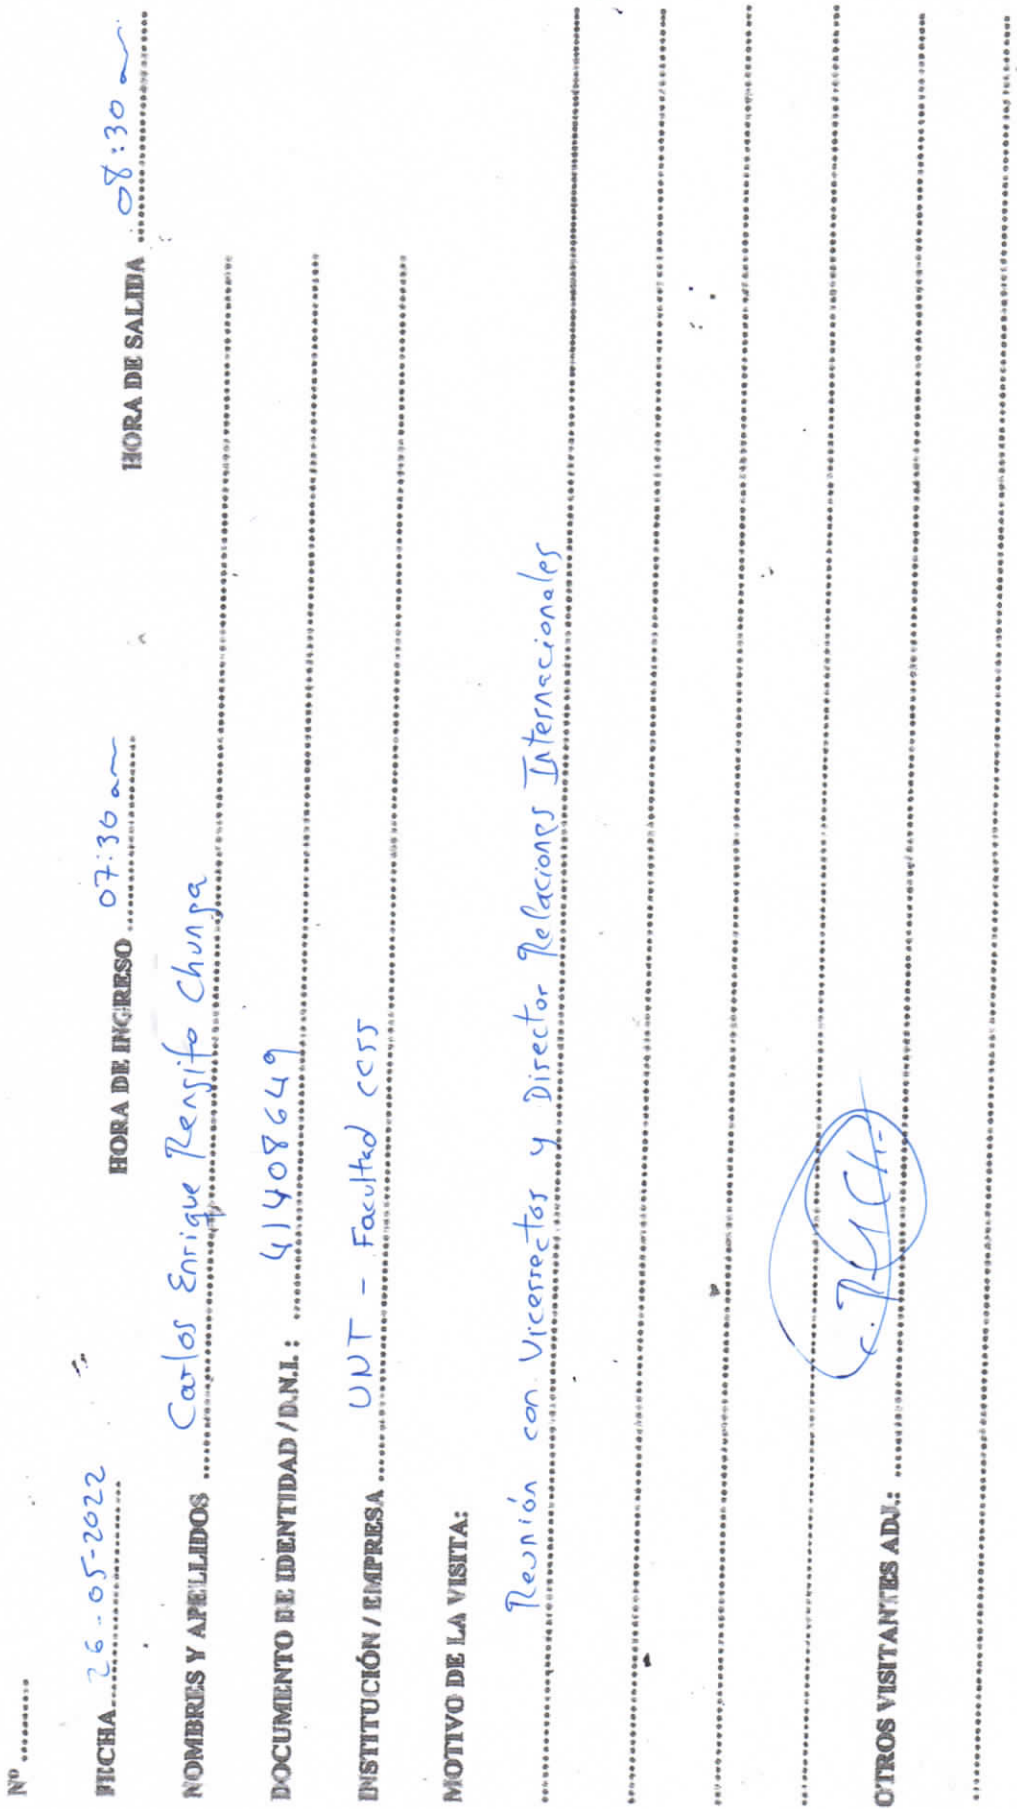 Nº ........
FECHA 26-05-2022 HORA DE INGRESO 07:30 am HORA DE SALIDA 08:30 am
NOMBRES Y APELLIDOS Carlos Enrique Rengifo Chunga
DOCUMENTO DE IDENTIDAD / D.N.I. : 41408649
INSTITUCIÓN / EMPRESA UNT - Facultad CCSS
MOTIVO DE LA VISITA:
Reunión con Vicerrector y Director Relaciones Internacionales
OTROS VISITANTES ADJ.: